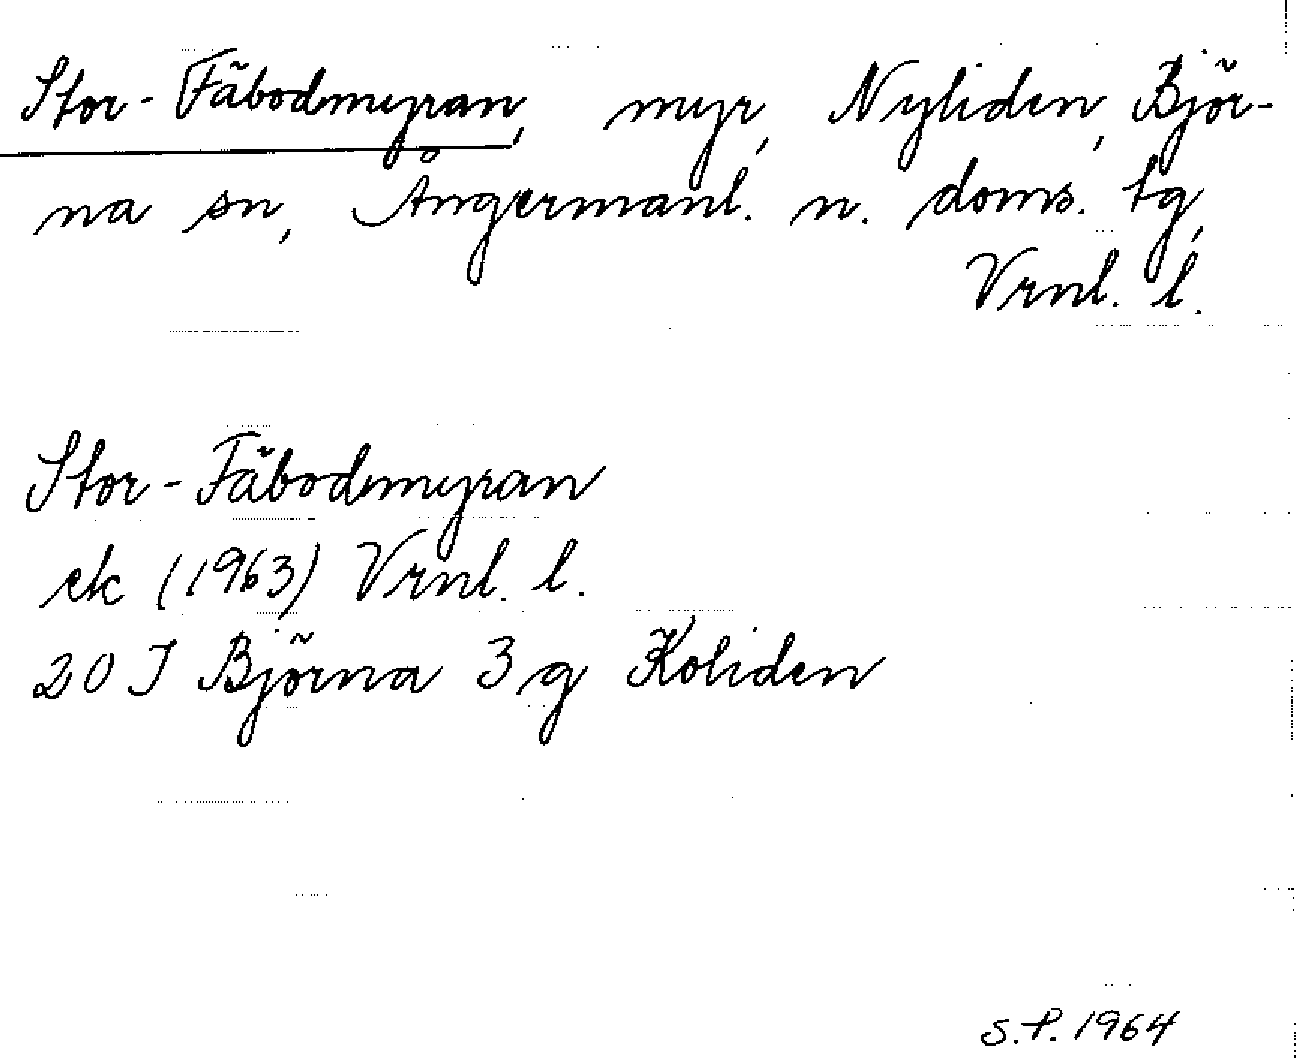 Stor-Fäbodmyran, myr, Nyliden, Björ-
na sn, Ångermanl. n. doms. tg,
Vrnl. l.
Stor-Fäbodmyran
ek (1963) Vrnl. l.
20 I Björna 3 g Koliden
S.P. 1964